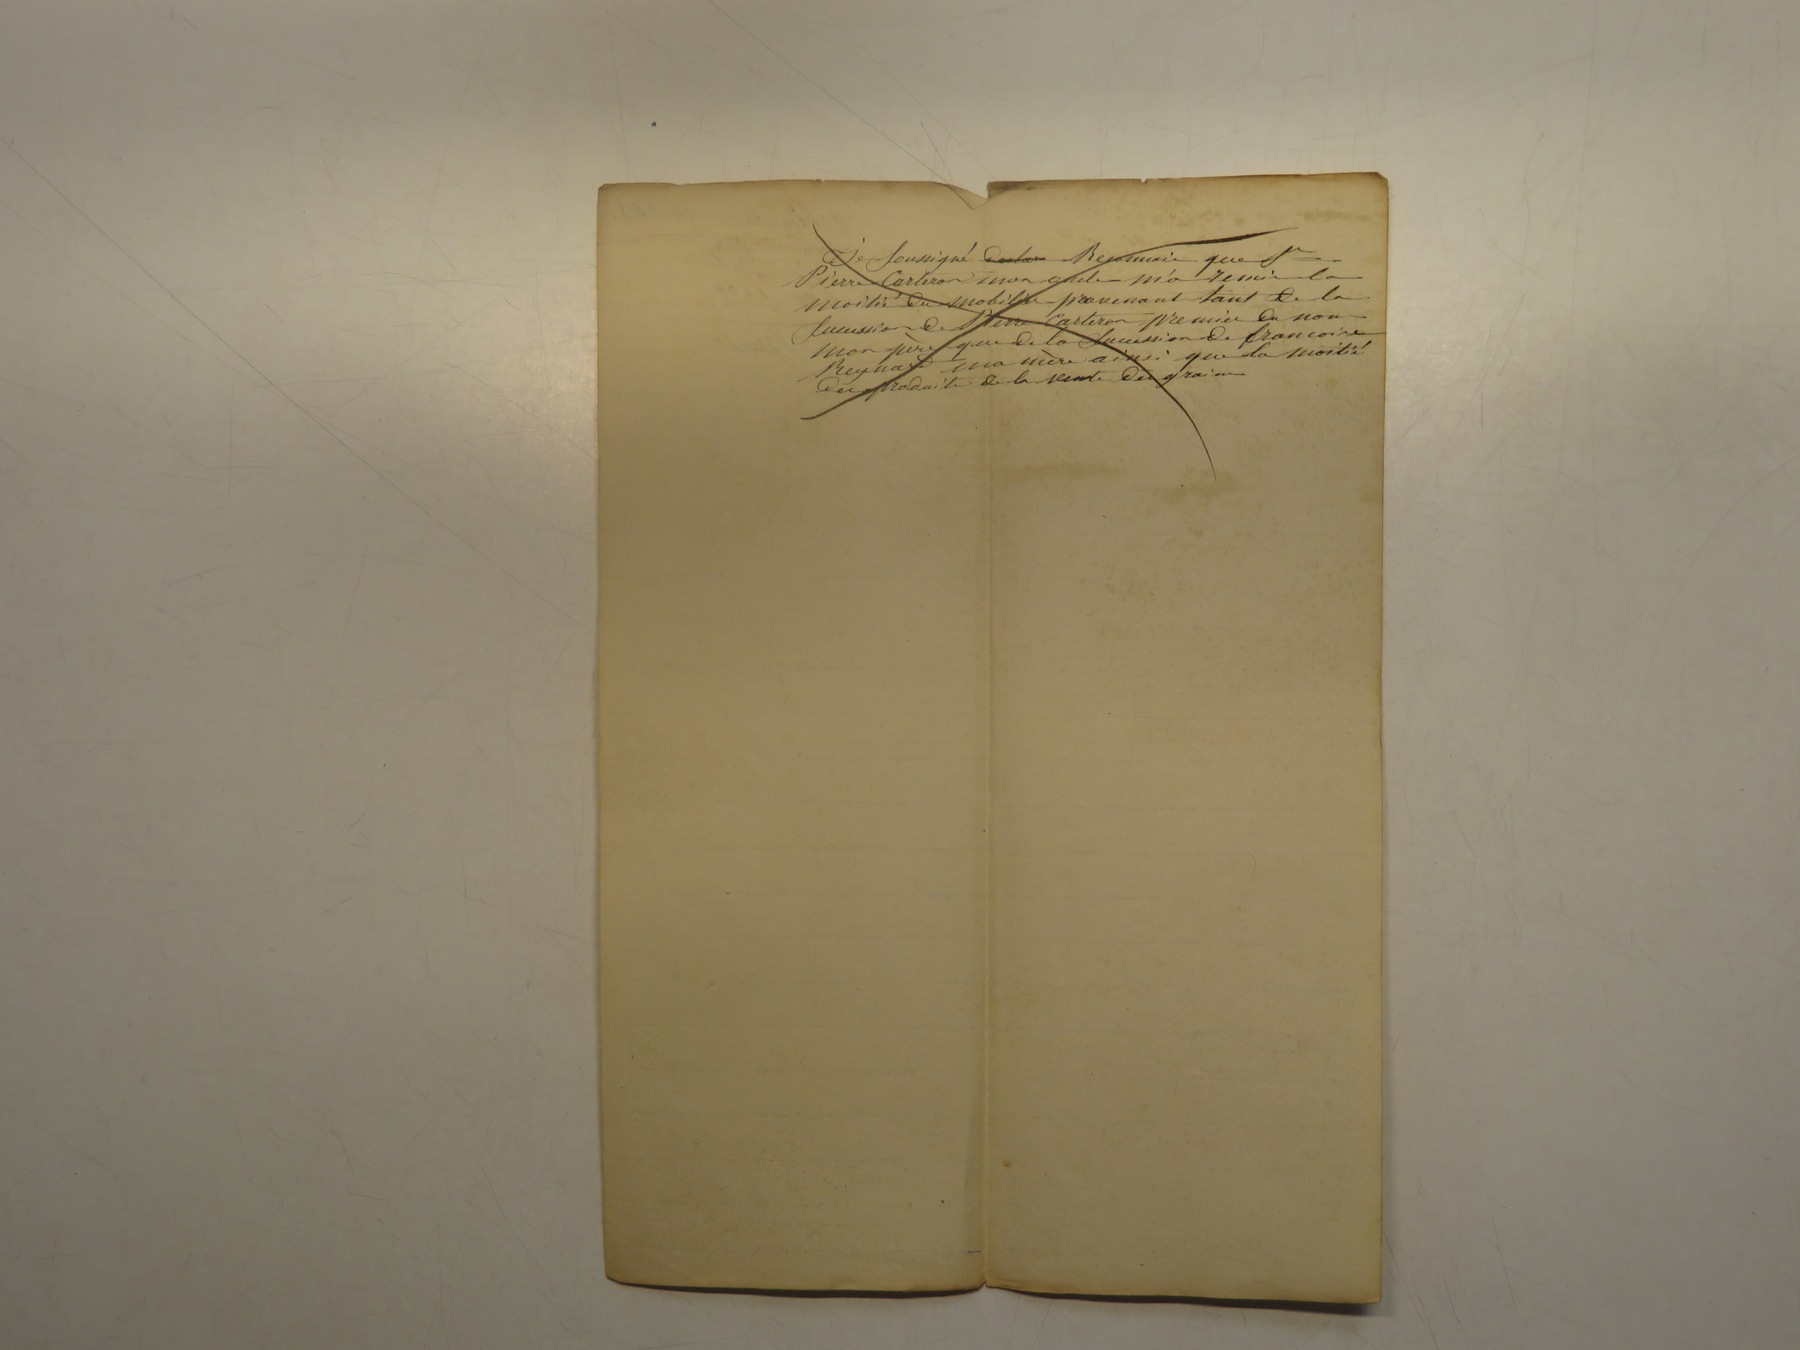 Je soussigné declare Reconnais que Sr
Pierre Carteron mon oncle m'a remis la
moitié du mobilier provenant tant de la
sucession de Pierre Carteron premier du nom
mon père que de la sucession de francoise
Reynard ma mère ainsi que la moitié
des produits de la vente des grains